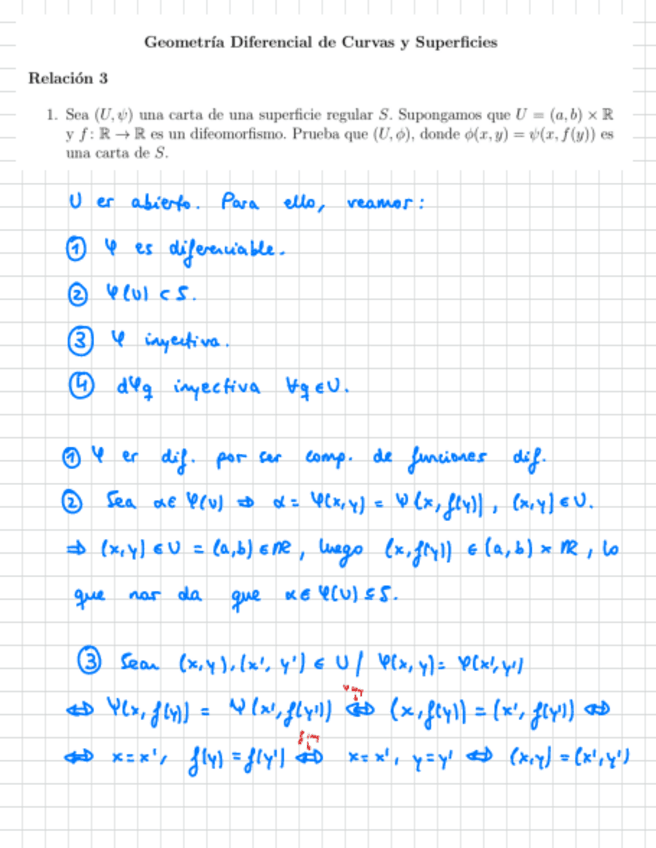 Geometría Diferencial de Curvas y Superficies
Relación 3
1. Sea (U, ψ) una carta de una superficie regular S. Supongamos que U = (a, b) × ℝ
y f : ℝ → ℝ es un difeomorfismo. Prueba que (U, ϕ), donde ϕ(x, y) = ψ(x, f(y)) es
una carta de S.
U es abierto. Para ello, veamos:
① φ es diferenciable.
② φ(U) ⊂ S.
③ φ inyectiva.
④ dφq inyectiva ∀q ∈ U.
① φ es dif. por ser comp. de funciones dif.
② Sea α ∈ φ(U) ⇒ α = φ(x,y) = ψ(x, f(y)), (x,y) ∈ U.
⇒ (x,y) ∈ U = (a,b) ∈ ℝ, luego (x, f(y)) ∈ (a,b) × ℝ, lo
que nos da que α ∈ φ(U) ⊆ S.
③ Sean (x,y), (x', y') ∈ U / φ(x, y) = φ(x', y')
⇔ ψ(x, f(y)) = ψ(x', f(y')) ⇔ (x, f(y)) = (x', f(y')) ⇔
⇔ x = x', f(y) = f(y') ⇔ x = x', y = y' ⇔ (x,y) = (x', y')